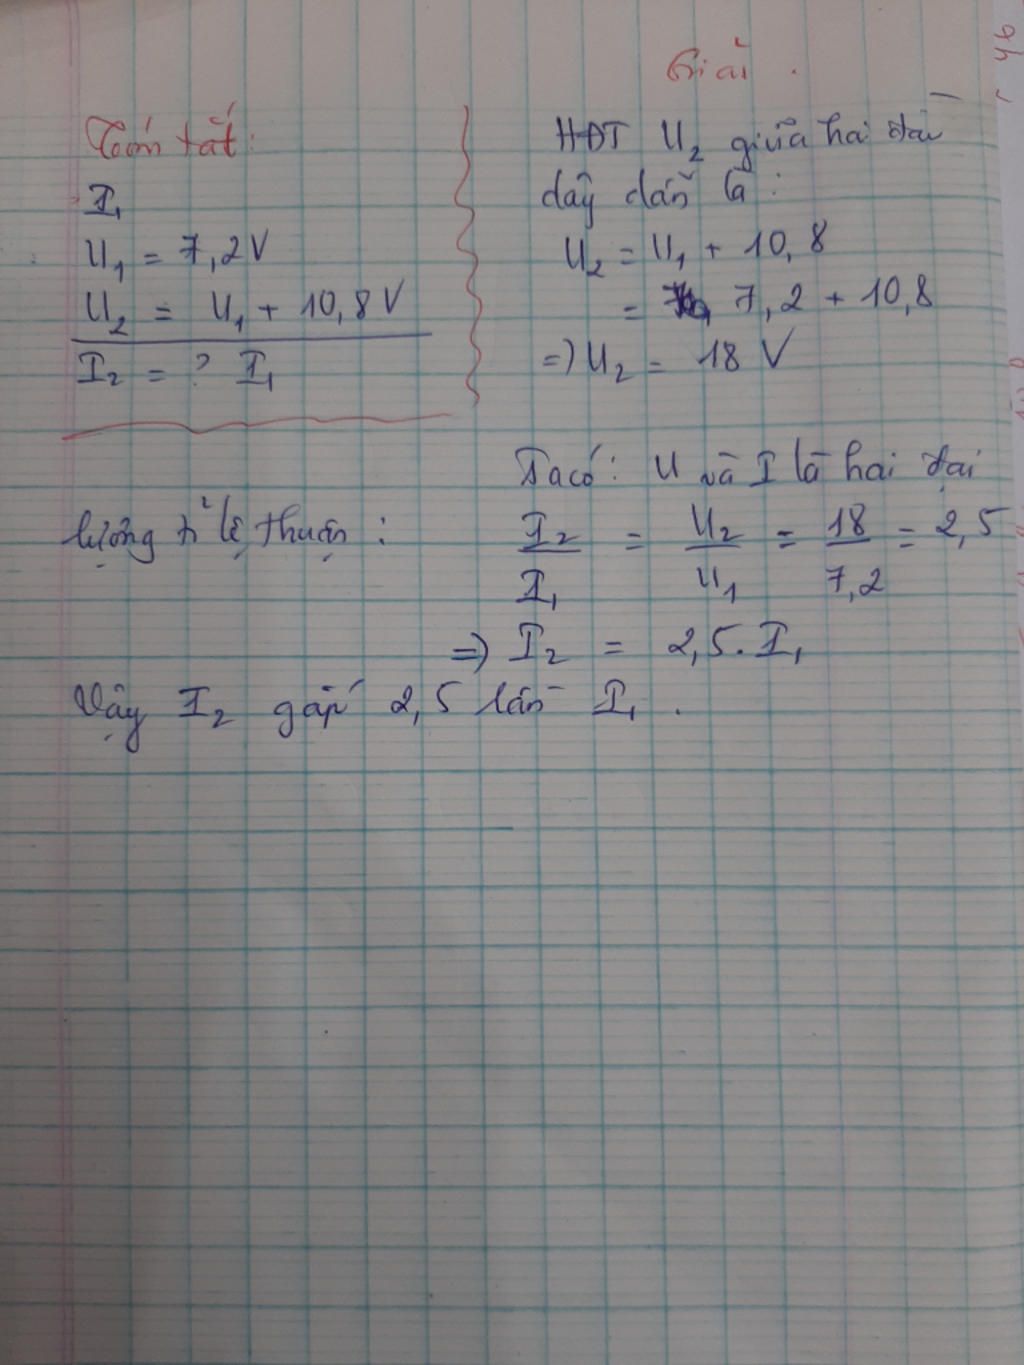 Giải.
Tóm tắt:
I₁
U₁ = 7,2V
U₂ = U₁ + 10,8V
I₂ = ? I₁
HĐT U₂ giữa hai đầu
dây dẫn là:
U₂ = U₁ + 10,8
= 7,2 + 10,8
=> U₂ = 18 V
Ta có: U và I là hai đại
lượng tỉ lệ thuận: I₂/I₁ = U₂/U₁ = 18/7,2 = 2,5
=> I₂ = 2,5.I₁
Vậy I₂ gấp 2,5 lần I₁.